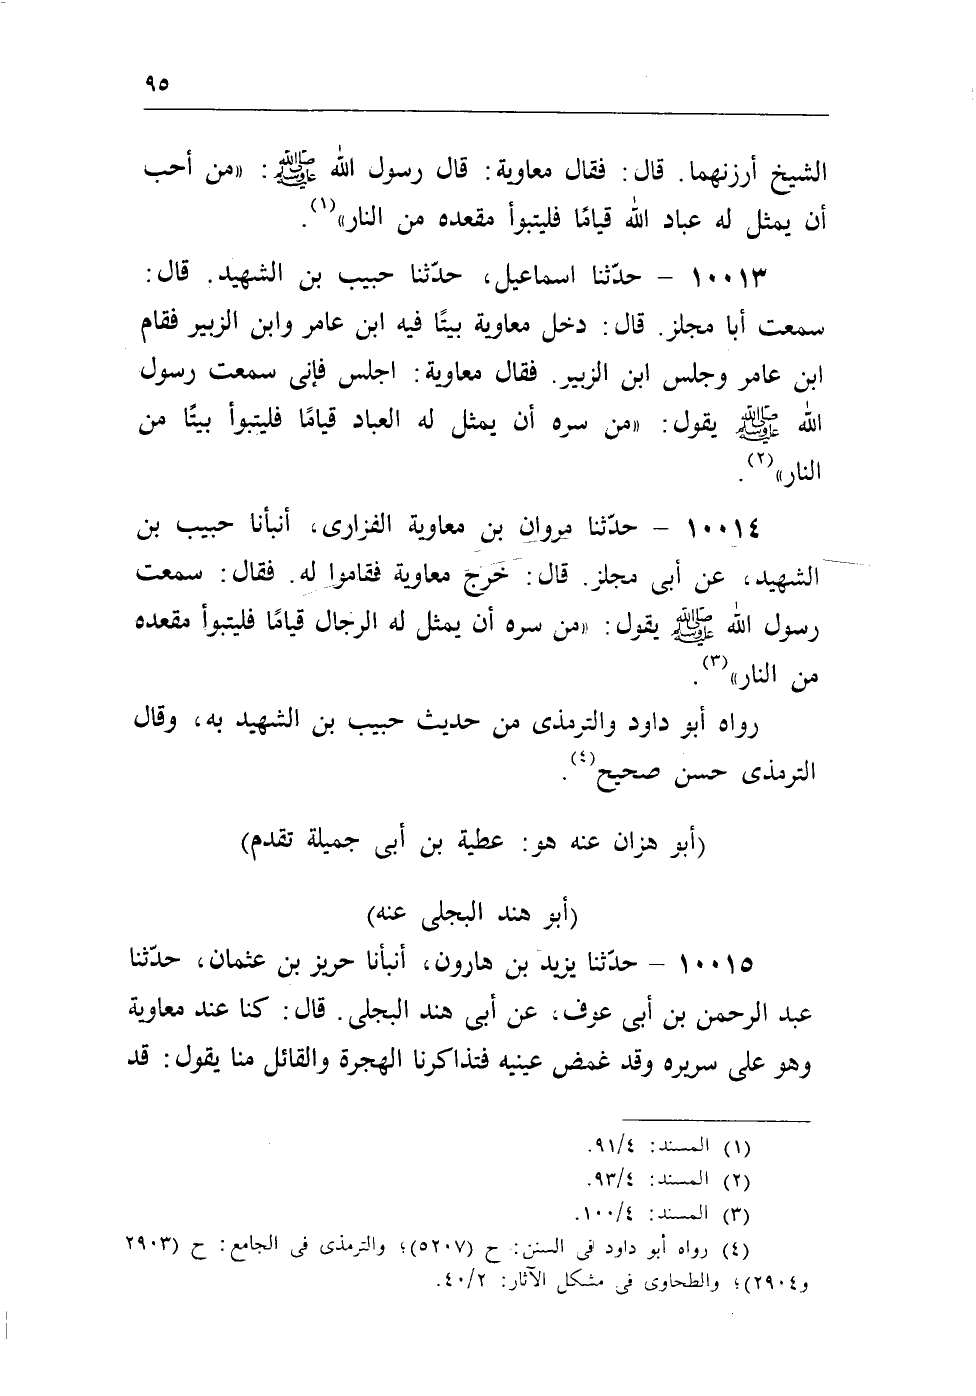 ٩٥
الشيخ أرزنهما. قال: فقال معاوية: قال رسول الله ﷺ: «من أحب
أن يمثل له عباد الله قيامًا فليتبوأ مقعده من النار»(١).
١٠٠١٣ – حدّثنا اسماعيل، حدّثنا حبيب بن الشهيد. قال:
سمعت أبا مجلز. قال: دخل معاوية بيتًا فيه ابن عامر وابن الزبير فقام
ابن عامر وجلس ابن الزبير. فقال معاوية: اجلس فإنى سمعت رسول
الله ﷺ يقول: «من سره أن يمثل له العباد قيامًا فليتبوأ بيتًا من
النار»(٢).
١٠٠١٤ – حدّثنا مروان بن معاوية الفزارى، أنبأنا حبيب بن
الشهيد، عن أبى مجلز. قال: خرج معاوية فقاموا له. فقال: سمعت
رسول الله ﷺ يقول: «من سره أن يمثل له الرجال قيامًا فليتبوأ مقعده
من النار»(٣).
رواه أبو داود والترمذى من حديث حبيب بن الشهيد به، وقال
الترمذى حسن صحيح(٤).
(أبو هزان عنه هو: عطية بن أبى جميلة تقدم)
(أبو هند البجلى عنه)
١٠٠١٥ – حدّثنا يزيد بن هارون، أنبأنا حريز بن عثمان، حدّثنا
عبد الرحمن بن أبى عوف، عن أبى هند البجلى. قال: كنا عند معاوية
وهو على سريره وقد غمض عينيه فتذاكرنا الهجرة والقائل منا يقول: قد
(١) المسند: ٩١/٤.
(٢) المسند: ٩٣/٤.
(٣) المسند: ١٠٠/٤.
(٤) رواه أبو داود فى السنن: ح (٥٢٠٧)؛ والترمذى فى الجامع: ح (٢٩٠٣
و٢٩٠٤)؛ والطحاوى فى مشكل الآثار: ٤٠/٢.